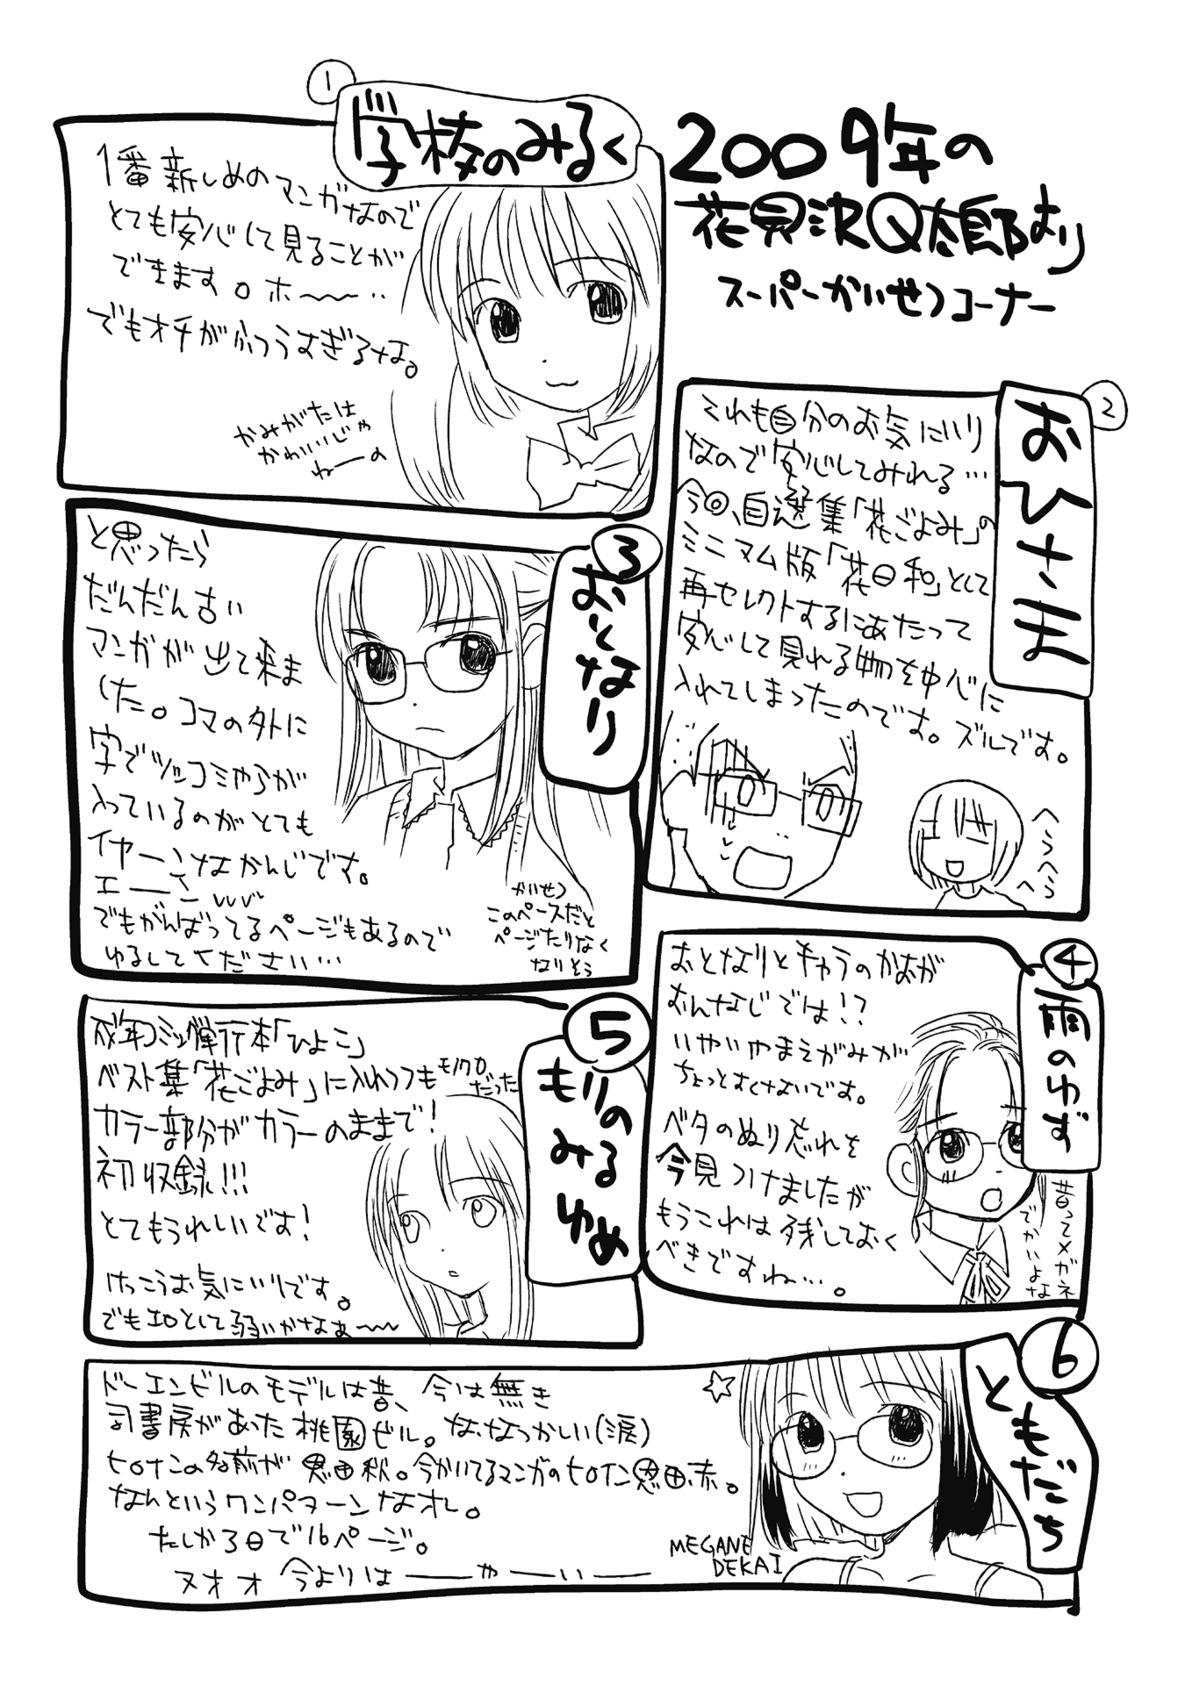 2009年の
花見沢Q太郎より
スーパーかいせつコーナー
1
学校のみるく
1番新しめのマンガなので
とても安心して見ることが
できます。ホ〜〜‥
でもオチがふつうすぎるな。
かみがたは
かわいいじゃ
ねーの
2
おひさま
これも自分のお気にいり
なので安心してみれる…
今回、自選集「花ごよみ」の
ミニマム版「花日和」として
再セレクトするにあたって
安心して見れる物を中心に
入れてしまったのです。ズルです。
へらへら
へ
3
おとなり
と思ったら
だんだん古い
マンガが出て来ま
した。コマの外に
字でツッコミやらが
入っているのがとても
イヤーンなかんじです。
エーンwv
でもがんばってるページもあるので
ゆるしてください…
かいせつ
このペースだと
ページたりなく
なりそう
4
雨のゆず
おとなりとキャラのかおが
おんなじでは!?
いやいやまえがみが
ちょっとすくないです。
ベタのぬり忘れを
今見つけましたが
もうこれは残しておく
べきですね…。
昔ってメガネ
でかいよな
5
もりのみるゆめ
成年コミック単行本「ひよこ」
ベスト集「花ごよみ」に入れつつもモノクロだった
カラー部分がカラーのままで!
初収録!!!
とてもうれしいです!
けっこうお気にいりです。
でもエロとして弱いかなぁ〜〜
6
ともだち
ドーエンビルのモデルは昔、今は無き
司書房があった桃園ビル。な、なつかしい(涙)
ヒロインの名前が恩田秋。今かいてるマンガのヒロイン恩田赤。
なんというワンパターンなオレ。
たしか3日で16ページ。
ヌオオ 今よりはーーやーいー
MEGANE
DEKAI